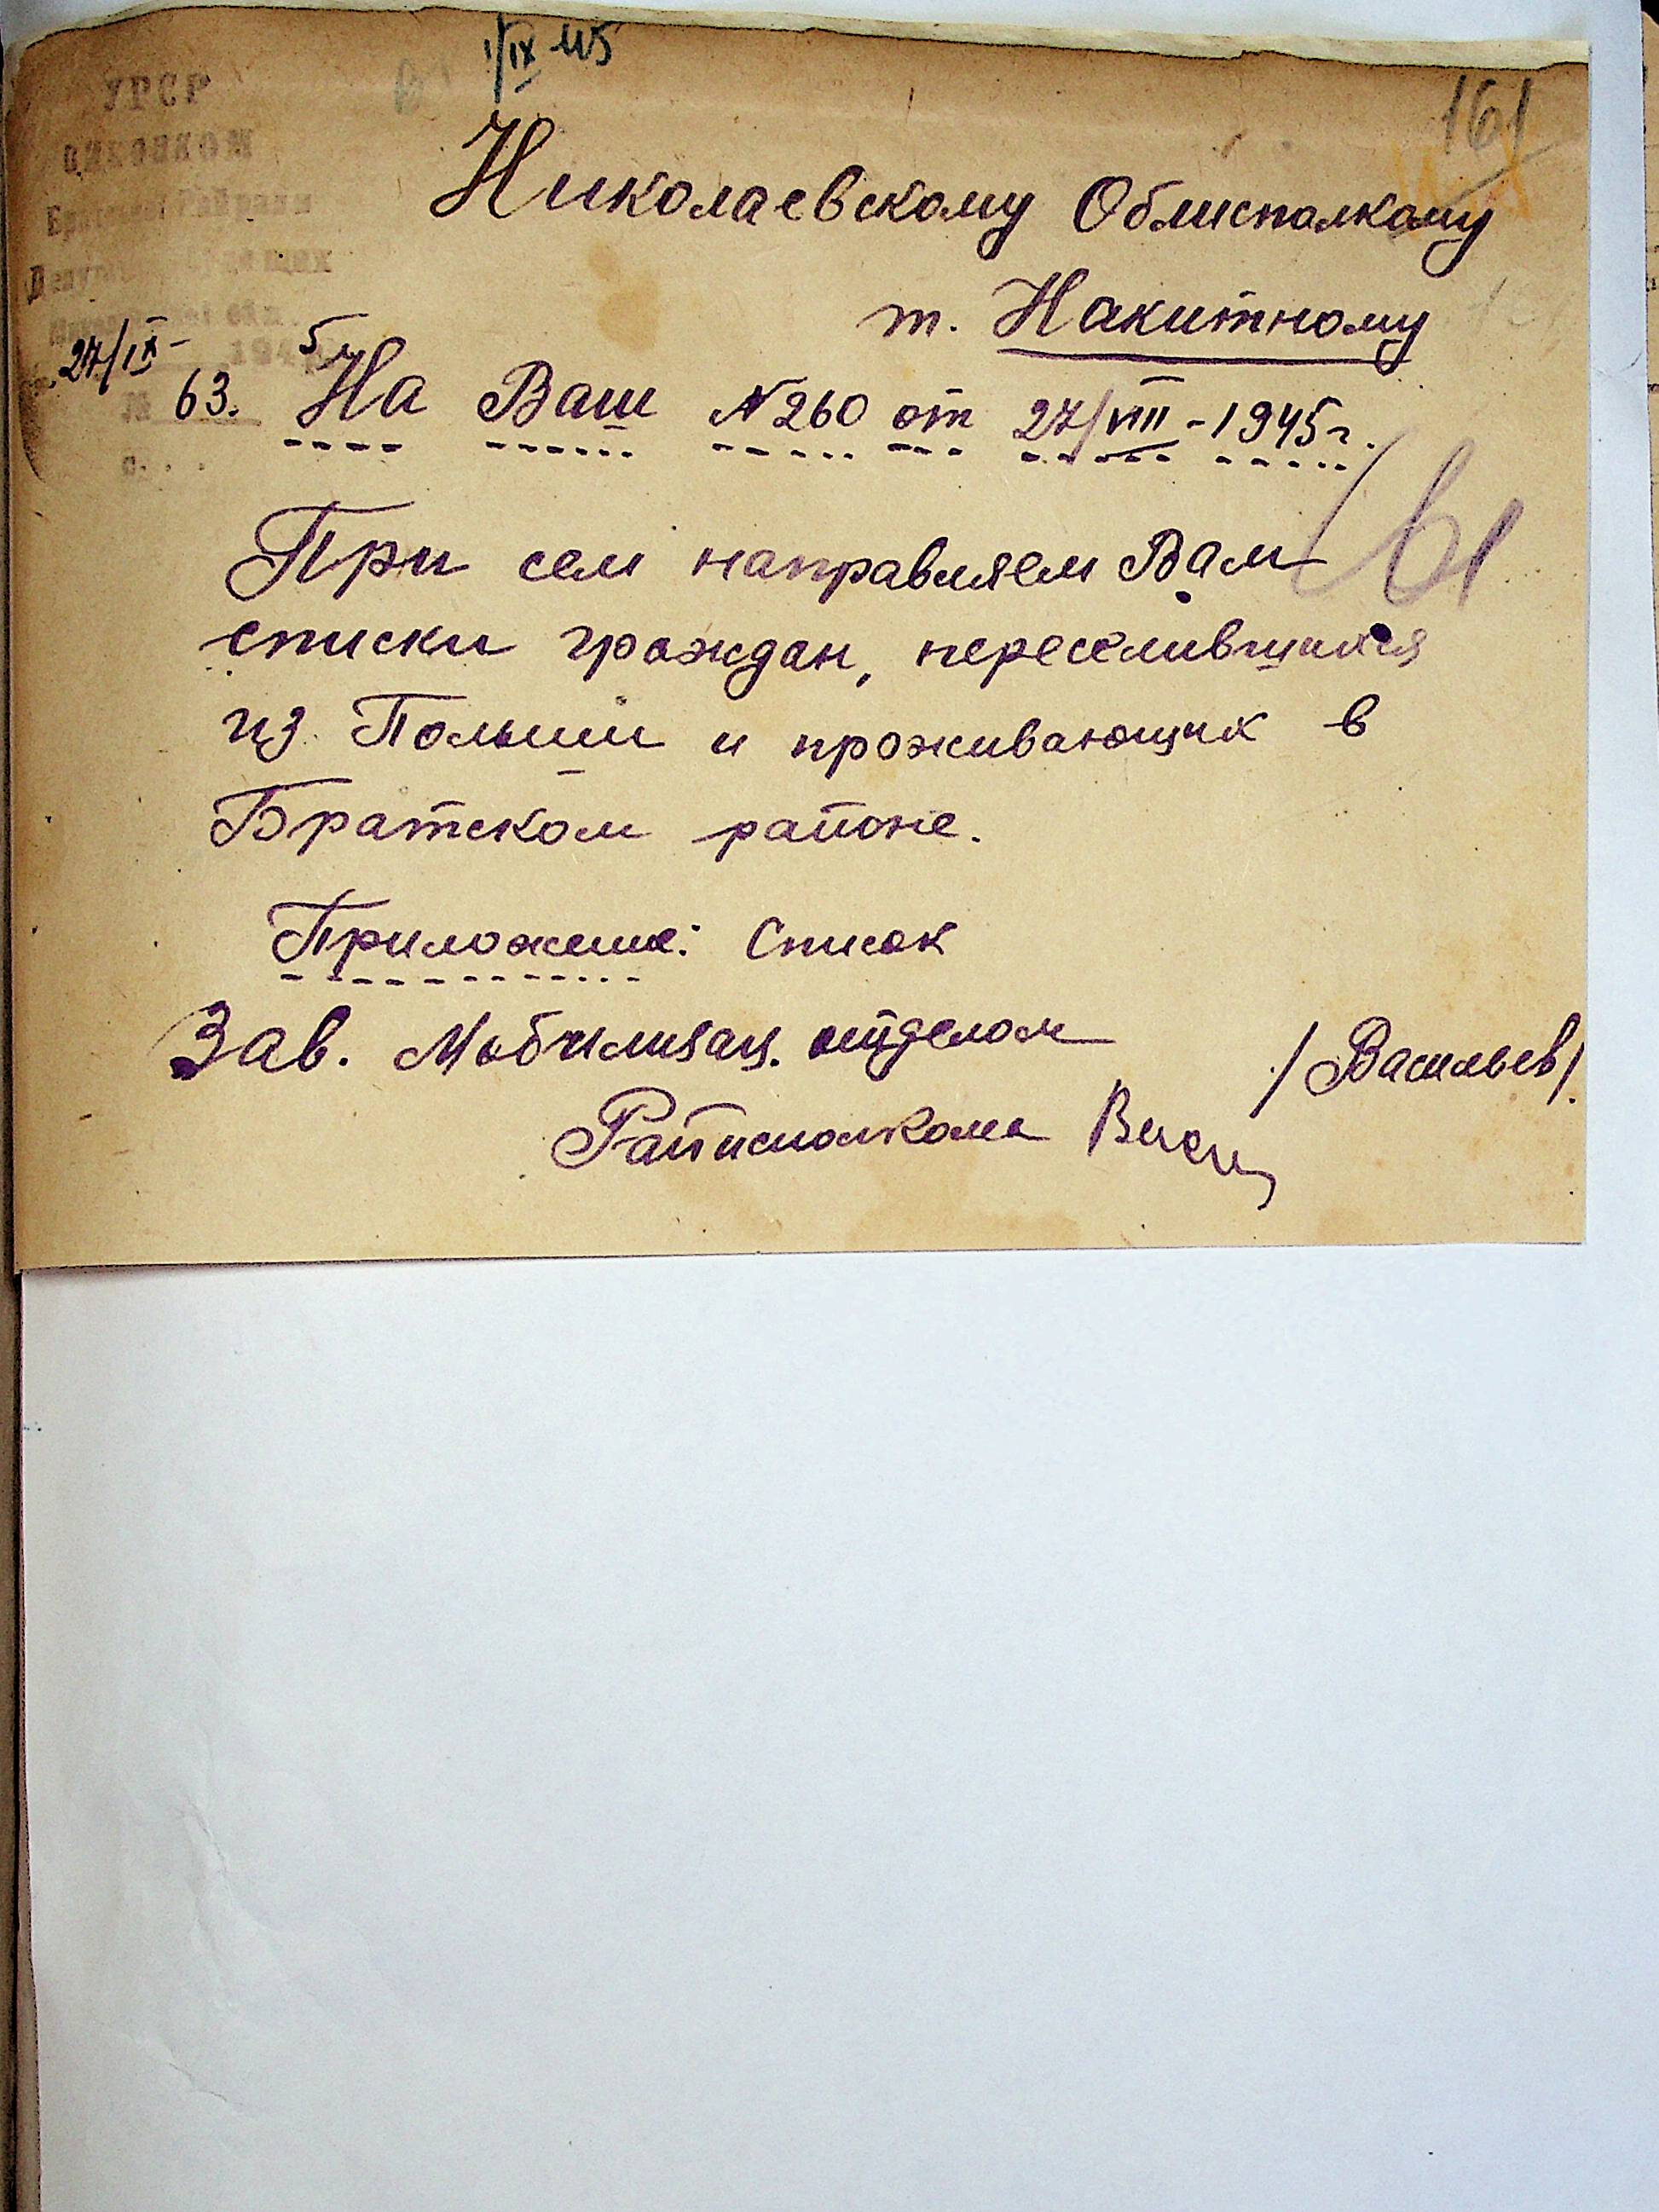 1/IX 45
161
УРСР
виконком
Братської Райради
Депутатів трудящих
обл.
27/IX - 1945
№ 63.
Николаевскому Облисполкому
т. Накитному
На Ваш №260 от 27/VIII-1945г.
161
При сем направляем Вам
списки граждан, переселившихся
из Польши и проживающих в
Братском районе.
Приложение: Список
Зав. Мобилизац. отделом
Райисполкома /Васильев/.